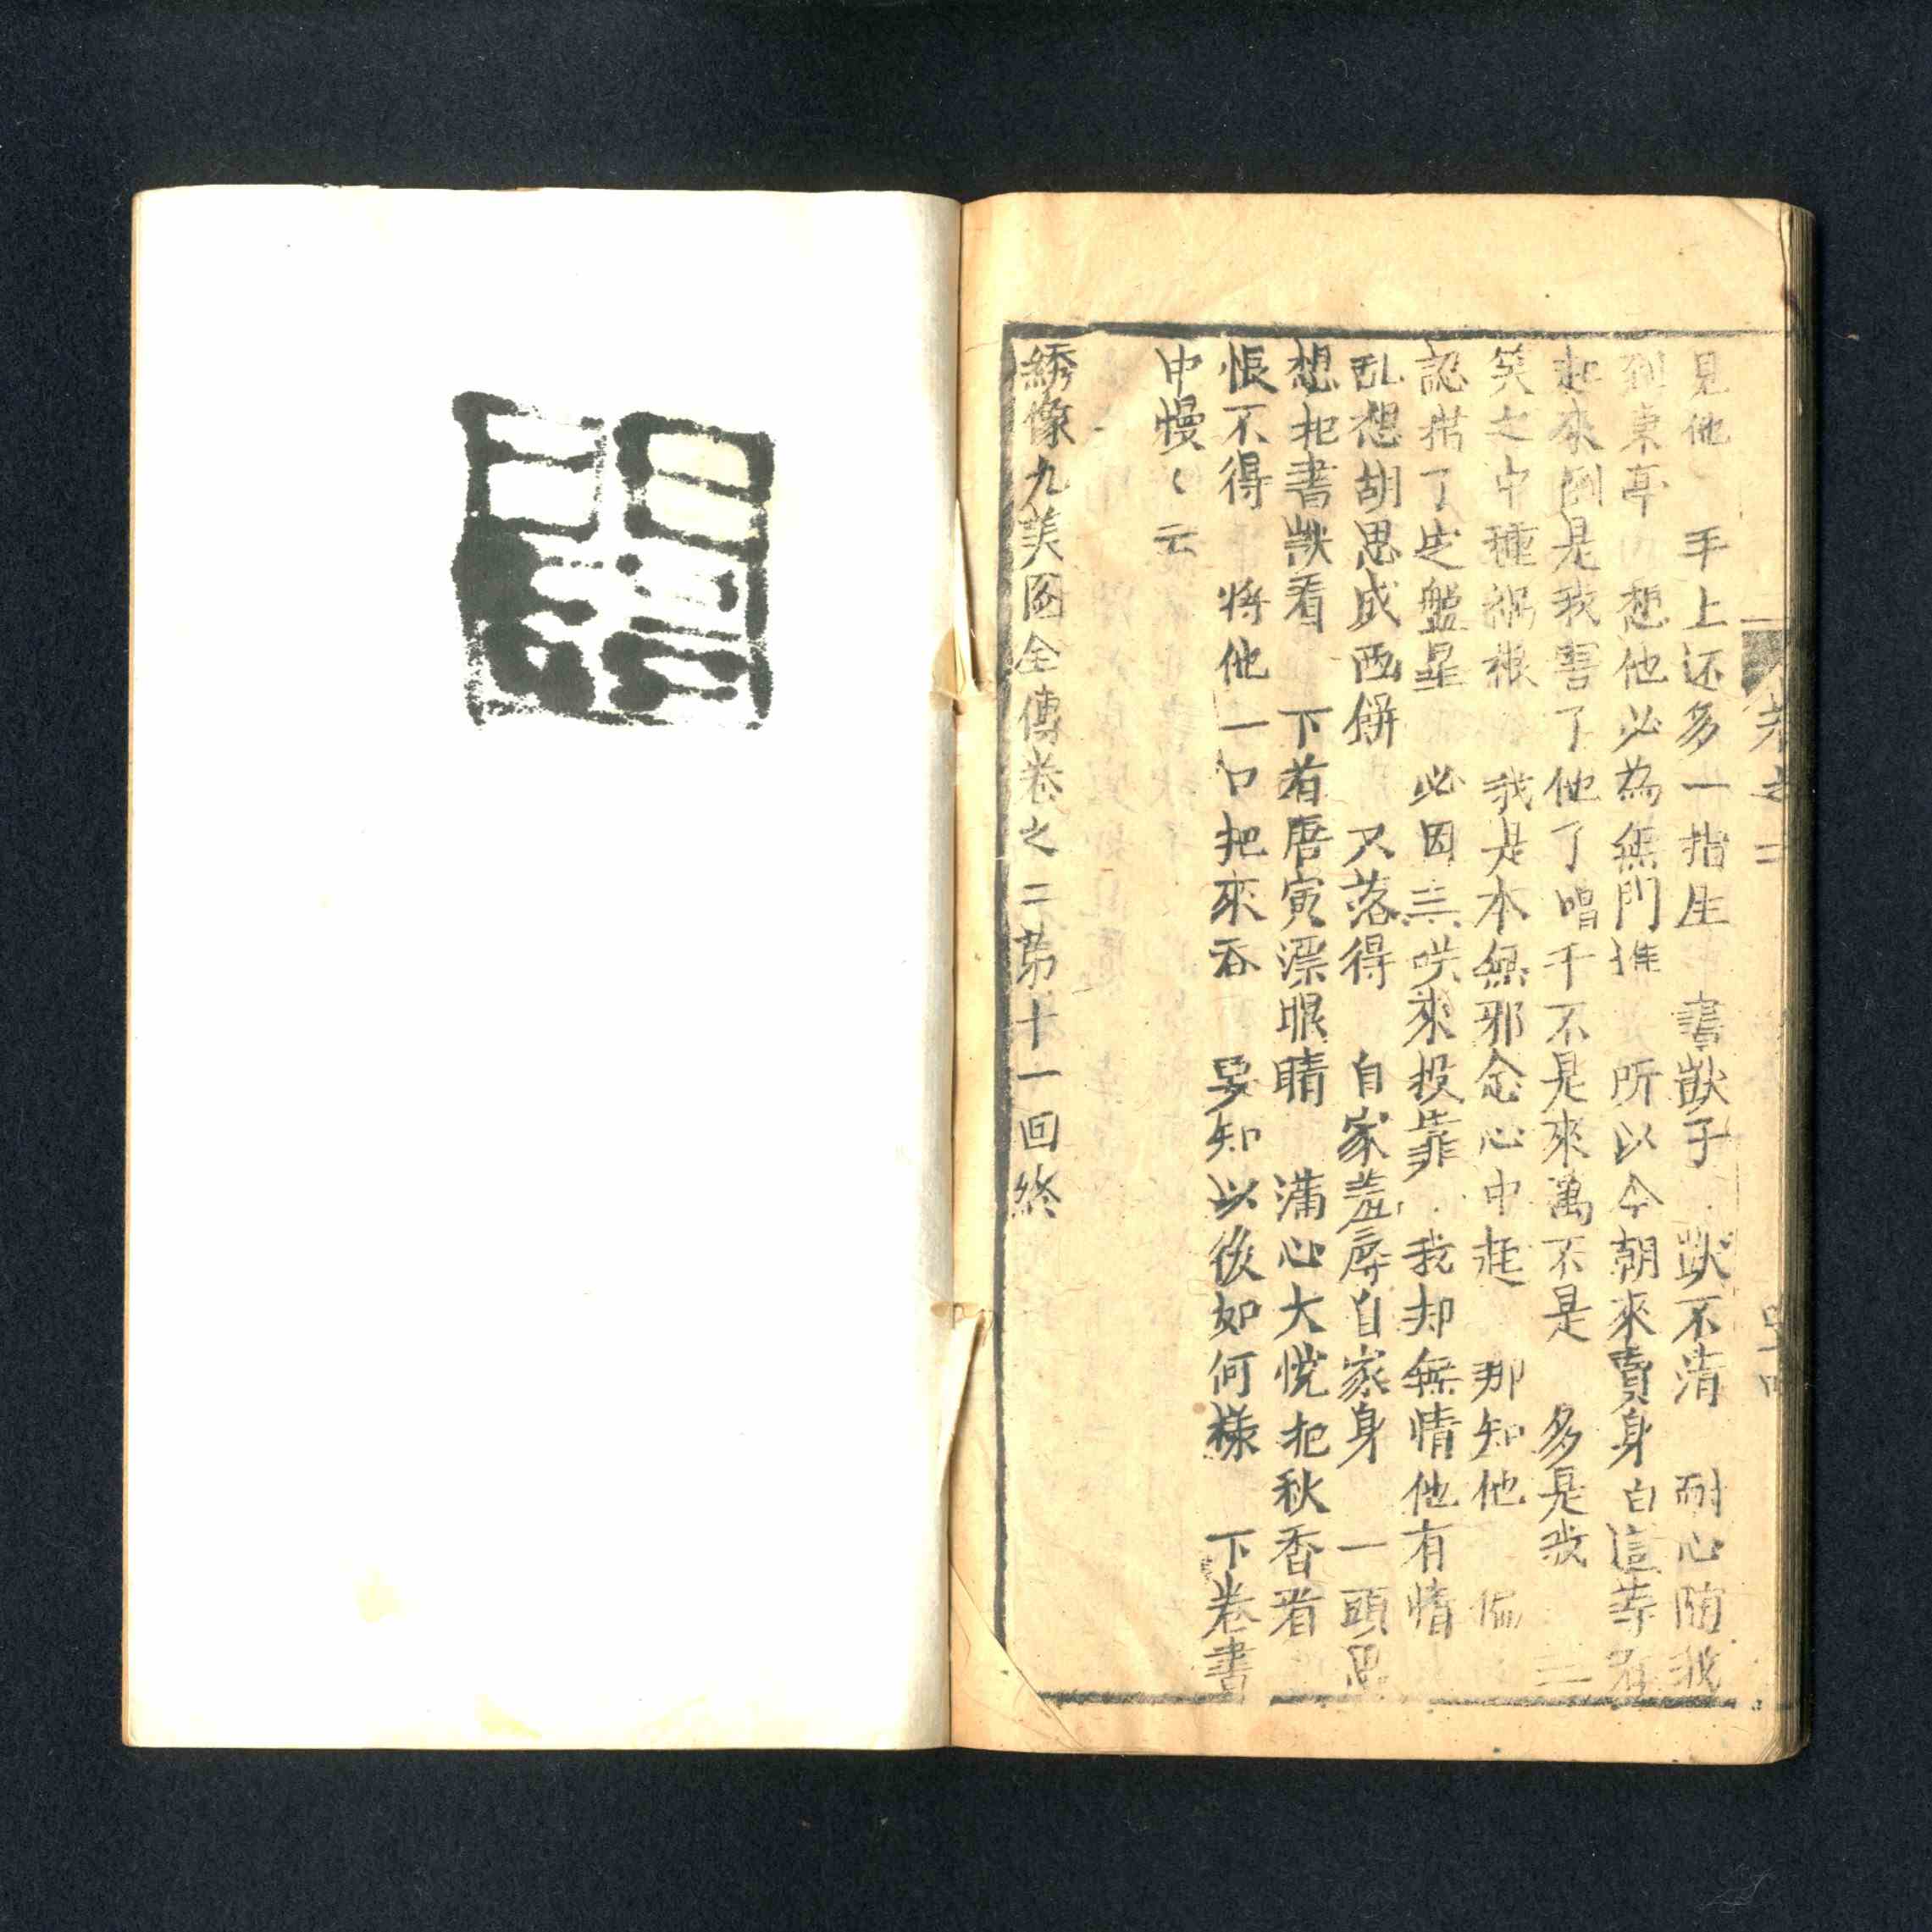 見他 手上还多一指生 書獃子 獃不清 耐心随我
到東亭 想他必為無門進 所以今朝來賣身 白 這等看
起來倒是我害了他了 唱 千不是來萬不是 多是我 一
笑之中種禍根 我是本無邪念心中起 那知他 偏
認措了定盤星 必因三笑來投靠 我却無情他有情
乱想胡思成画餅 又落得 自家羞辱自家身 一頭思
想把書獃看 下首唐寅漂眼睛 满心大悅把秋香看
恨不得 将他一口把來吞 要知以後如何樣 下卷書
中慢〻云
綉像九美图全傳卷之二第十一回終
卷之二